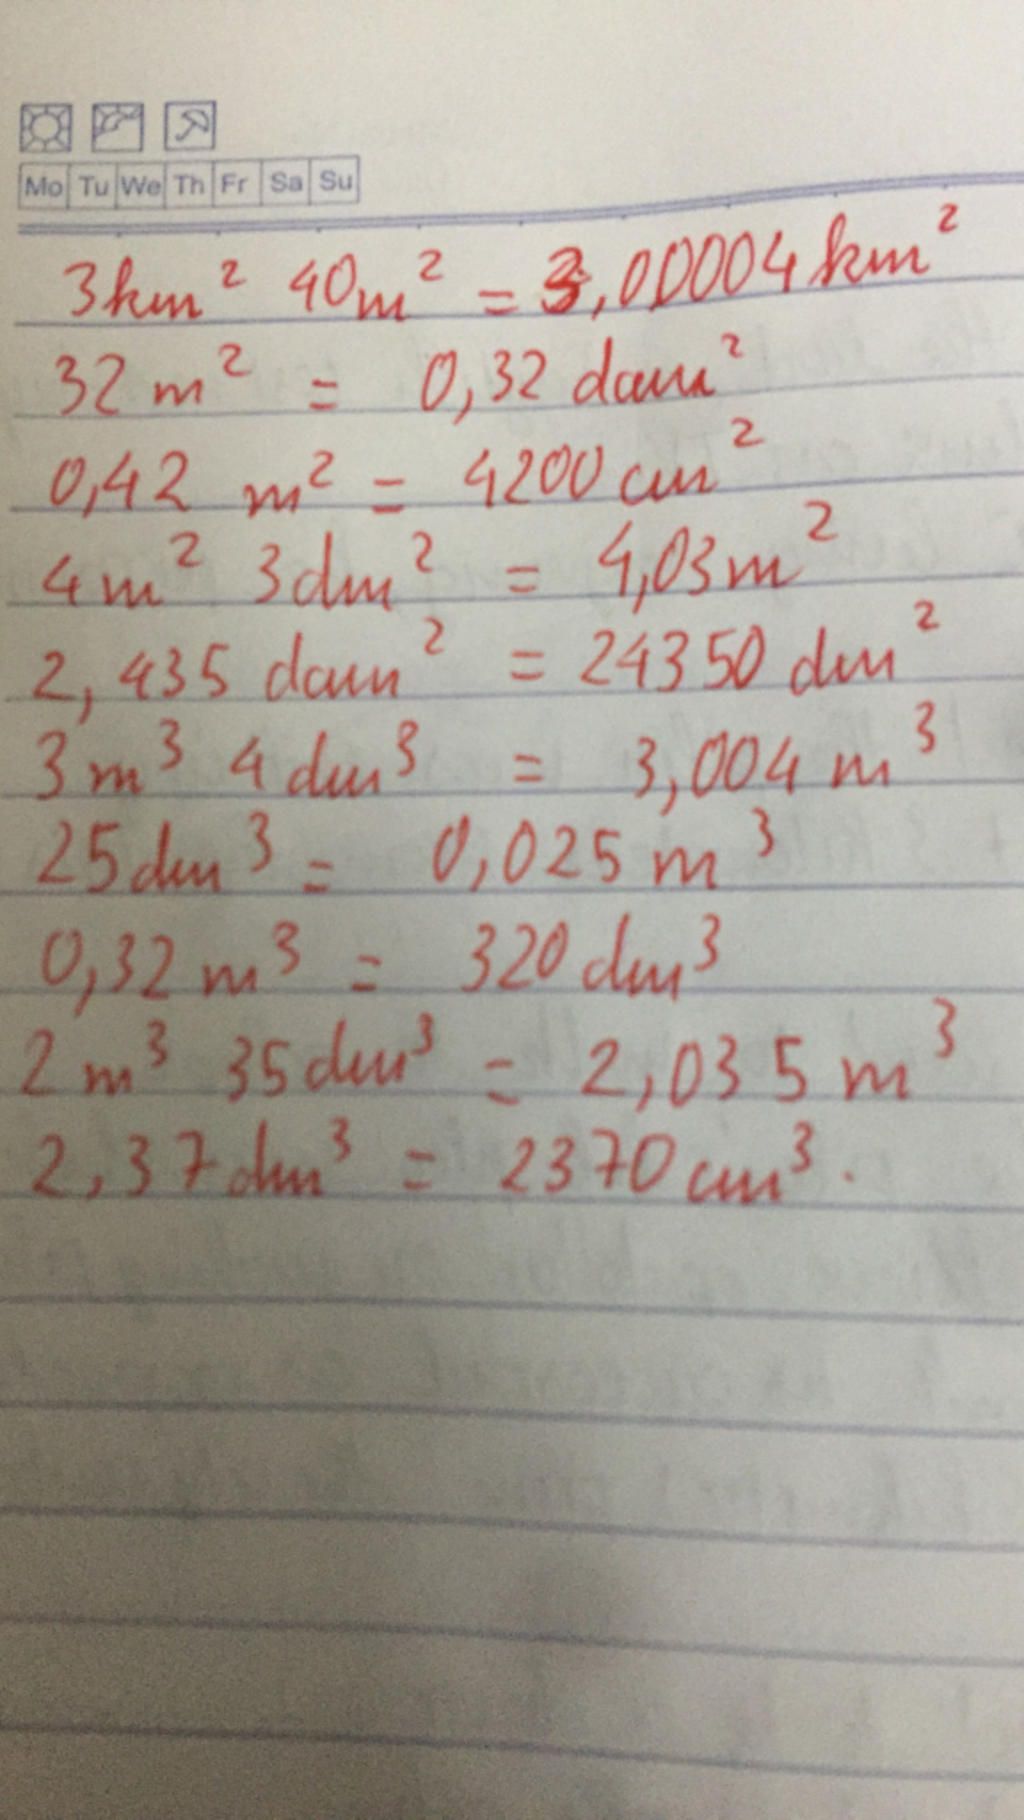 Mo Tu We Th Fr Sa Su
3km² 40m² = 3,00004km²
32m² = 0,32dam²
0,42 m² = 4200cm²
4m² 3dm² = 4,03m²
2,435 dam² = 24350 dm²
3m³ 4dm³ = 3,004m³
25dm³ = 0,025m³
0,32m³ = 320dm³
2m³ 35dm³ = 2,035m³
2,37dm³ = 2370cm³.